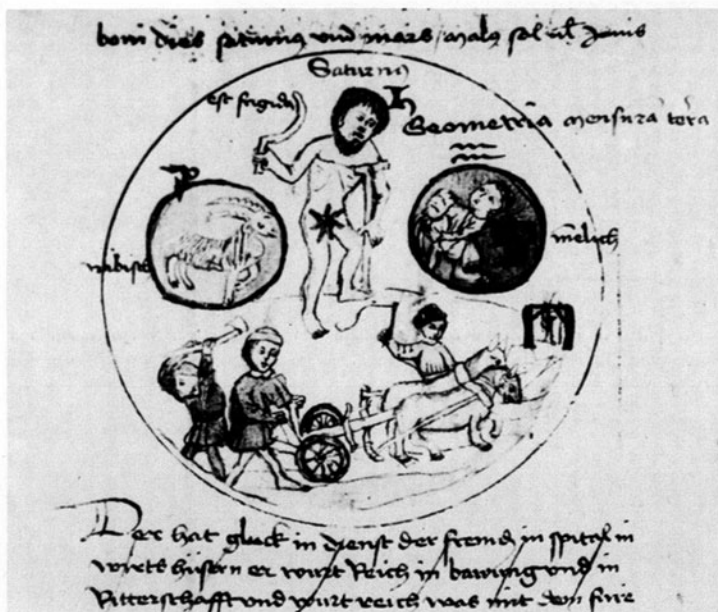 boni dies saturnus und mars / malus sol vel Jovis
Saturnus
est frigidus
Geometria mensura terra
Der hat gluck in dienst der fremd in spital in
wirts hüsern er wurt Reich in bawung und in
Ritterschafft und wurt reich was mit dem füre